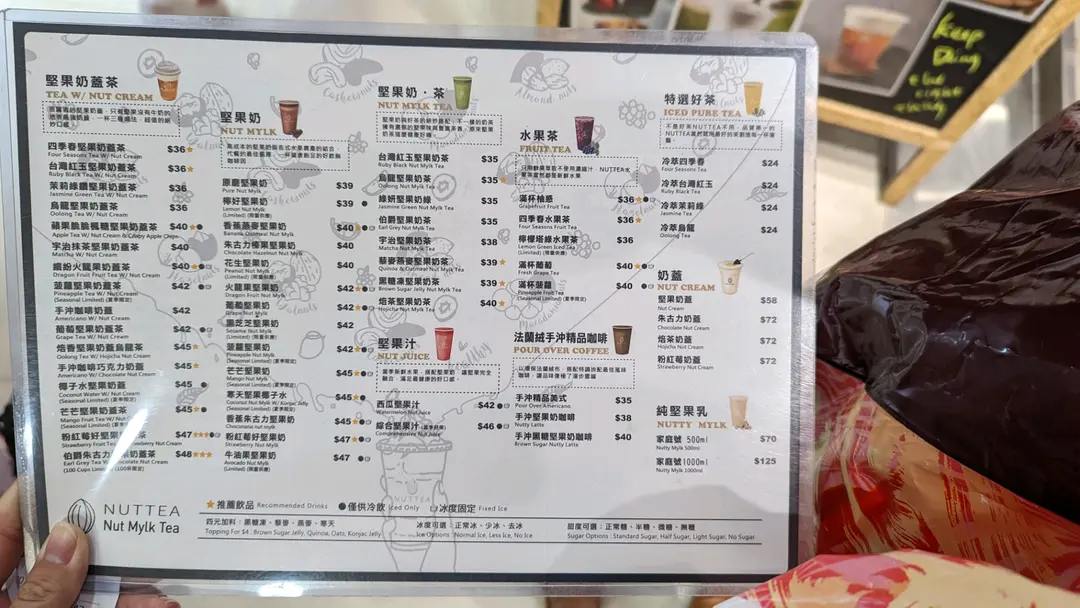 堅果奶蓋茶
TEA W/ NUT CREAM
四季春堅果奶蓋茶 $36★
Four Seasons Tea W/ Nut Cream
台灣紅玉堅果奶蓋茶 $36★
Ruby Black Tea W/ Nut Cream
茉莉綠纖堅果奶蓋茶 $36
Jasmine Green Tea W/ Nut Cream
烏龍堅果奶蓋茶 $36
Oolong Tea W/ Nut Cream
蘋果脆脆楓糖堅果奶蓋茶 $40
Apple Tea W/ Nut Cream & Crispy Apple Chips
宇治抹茶堅果奶蓋茶 $40
Matcha W/ Nut Cream
繽紛火龍堅果奶蓋茶 $40
Dragon Fruit Fruit Tea W/ Nut Cream
菠蘿堅果奶蓋茶 $42
Pineapple Tea W/ Nut Cream
(Seasonal Limited) (夏季限定)
手沖咖啡奶蓋 $42
Americano W/ Nut Cream
葡萄堅果奶蓋茶 $42
Grape Tea W/ Nut Cream
焙香堅果奶蓋烏龍茶 $45
Oolong Tea W/ Hojicha Nut Cream
手沖咖啡巧克力奶蓋 $45
Americano W/ Chocolate Nut Cream
椰子水堅果奶蓋 $45
Coconut Water W/ Nut Cream
(Seasonal Limited) (夏季限定)
芒芒堅果奶蓋茶 $45
Mango Fruit Tea W/ Nut Cream
(Seasonal Limited) (夏季限定)
粉紅莓好堅果奶 茶 $47
Strawberry Fruit Tea Strawberry Nut Cream
伯爵朱古力 果奶蓋茶 $48★★★
Earl Grey Tea W/ Chocolate Nut Cream
(100 Cups Limited) (100杯限定)
堅果奶
NUT MYLK
原磨堅果奶 $39
Pure Nut Mylk
檸好堅果奶 $39
Lemon Nut Mylk
(Limited) (限量供應)
香蕉燕麥堅果奶 $40
Banana Oatmeal Nut Mylk
朱古力榛果堅果奶 $40
Chocolate Hazelnut Nut Mylk
花生堅果奶 $40
Peanut Nut Mylk
(Limited) (限量供應)
火龍堅果奶 $42
Dragon Fruit Nut Mylk
葡萄堅果奶 $42
Grape Nut Mylk
黑芝芝堅果奶 $42
Sesame Nut Mylk
(Limited) (限量供應)
菠蘿堅果奶 $42
Pineapple Nut Mylk
(Seasonal Limited) (夏季限定)
芒芒堅果奶 $45
Mango Nut Mylk
(Seasonal Limited) (夏季限定)
寒天堅果椰子水 $45
Coconut Nut Mylk W/ Konjac Jelly
(Seasonal Limited) (夏季限定)
香蕉朱古力堅果奶 $45
Choconana Nut Mylk
粉紅莓好堅果奶 $47
Strawberry Nut Mylk
牛油果堅果奶 $47
Avocado Nut Mylk
(Limited) (限量供應)
堅果奶．茶
NUT MYLK TEA
台灣紅玉堅果奶茶 $35
Ruby Black Nut Mylk Tea
烏龍堅果奶茶 $35
Oolong Nut Mylk Tea
綠妍堅果奶綠 $35
Jasmine Green Nut Mylk Tea
伯爵堅果奶茶 $35
Earl Grey Nut Mylk Tea
宇治堅果奶茶 $38
Matcha Nut Mylk Tea
藜麥燕麥堅果奶茶 $39
Quinoa & Oatmeal Nut Mylk Tea
黑糖凍堅果奶茶 $39
Brown Sugar Jelly Nut Mylk Tea
焙茶堅果奶茶 $40
Hojicha Nut Mylk Tea
堅果汁
NUT JUICE
西瓜堅果汁 $42
Watermelon Nut Juice
綜合堅果汁 $46
Comprehensive Nut Juice
水果茶
FRUIT TEA
滿杯柚惑 $36
Grapefruit Fruit Tea
四季春水果茶 $36★
Four Seasons Fruit Tea
檸檬塔綠水果茶 $36
Lemon Green Iced Tea
(Limited) (限量供應)
滿杯葡萄 $40
Fresh Grape Tea
滿杯菠蘿 $40
Pineapple Fruit Tea
(Seasonal Limited) (夏季限定)
法蘭絨手沖精品咖啡
POUR OVER COFFEE
手沖精品美式 $35
Pour Over Americano
手沖堅果奶咖啡 $38
Nutty Latte
手沖黑糖堅果奶咖啡 $40
Brown Sugar Nutty Latte
特選好茶
ICED PURE TEA
冷萃四季春 $24
Four Seasons Tea
冷萃台灣紅玉 $24
Ruby Black Tea
冷萃茉莉綠 $24
Jasmine Tea
冷萃烏龍 $24
Oolong Tea
奶蓋
NUT CREAM
堅果奶蓋 $58
Nut Cream
朱古力奶蓋 $72
Chocolate Nut Cream
焙茶奶蓋 $72
Hojicha Nut Cream
粉紅莓奶蓋 $72
Strawberry Nut Cream
純堅果乳
NUTTY MYLK
家庭號 500ml $70
Nutty Mylk 500ml
家庭號1000ml $125
Nutty Mylk 1000ml
NUTTEA
Nut Mylk Tea
★推薦飲品 Recommended Drinks ●僅供冷飲 Iced Only 冰度固定 Fixed Ice
四元加料：黑糖凍、藜麥、燕麥、寒天
Topping For $4 : Brown Sugar Jelly, Quinoa, Oats, Konjac Jelly
冰度可選：正常冰、少冰、去冰
Ice Options : Normal Ice, Less Ice, No Ice
甜度可選：正常糖、半糖、微糖、無糖
Sugar Options : Standard Sugar, Half Sugar, Light Sugar, No Sugar
Keep